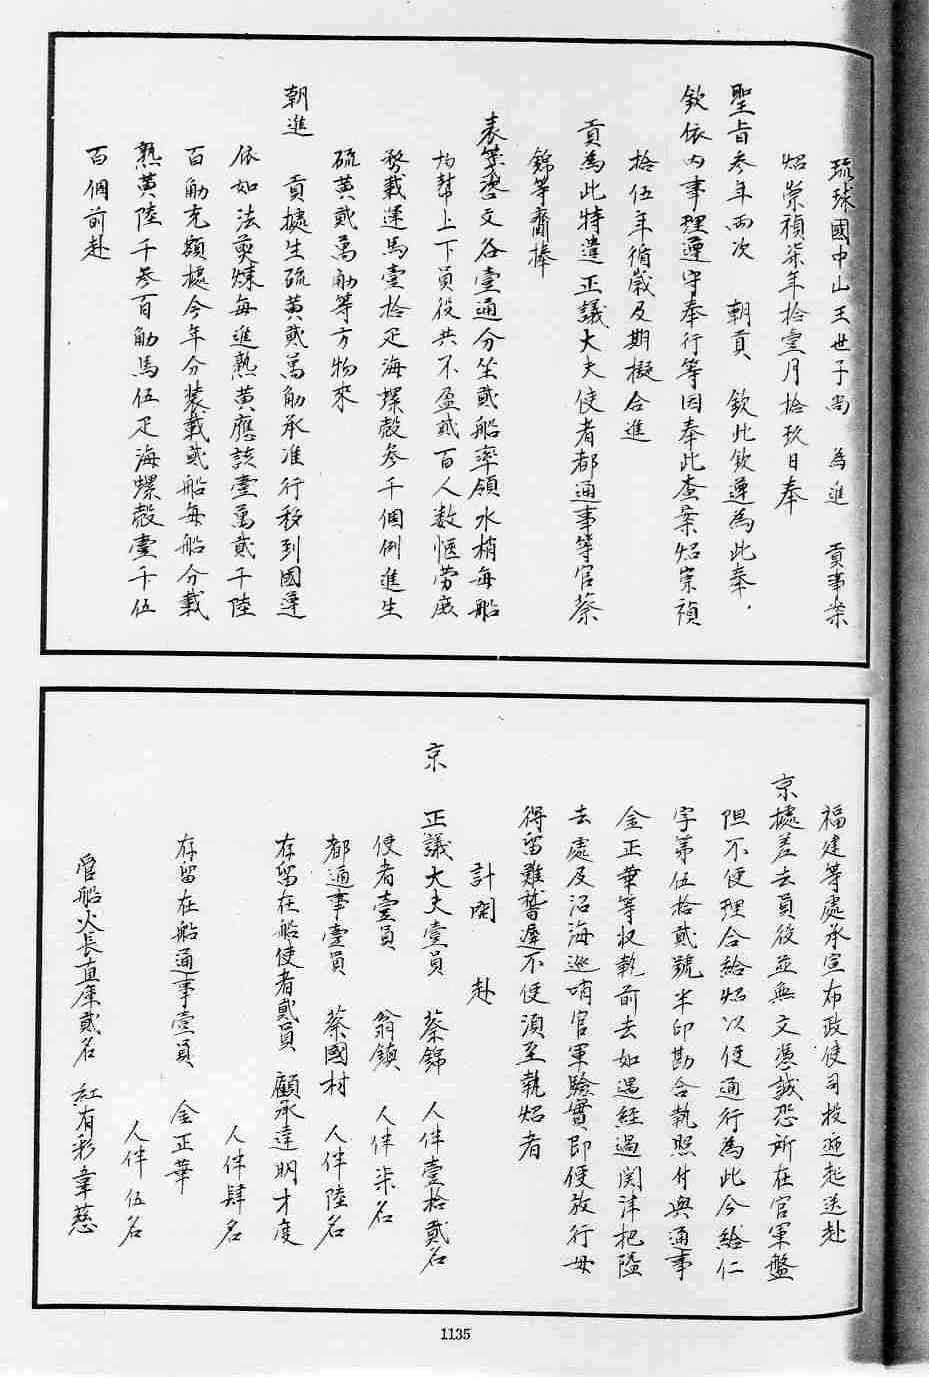 琉球國中山王世子尚 為進 貢事案
炤崇禎柒年拾壹月拾玖日奉
聖旨叁年兩次 朝貢 欽此欽遵為此奉
欽依內事理遵守奉行等因奉此查案炤崇禎
拾伍年循歲及期擬合進
貢為此特遣正議大夫使者都通事等官蔡
錦等齎捧
表箋咨文各壹通分坐貳船率領水梢每船
均幇上下員役共不盈貳百人數愜勞底
務載運馬壹拾疋海螺殼叁千個例進生
硫黃貳萬觔等方物來
朝進 貢據生硫黃貳萬觔承准行移到國遵
依如法煎煉每進熟黃應該壹萬貳千陸
百觔充額據今年分裝載貳船每船分載
熟黃陸千叁百觔馬伍疋海螺殼壹千伍
百個前赴
福建等處承宣布政使司投遞起送赴
京據差去員役並無文憑誠恐所在官軍盤
阻不便理合給炤以便通行為此今給仁
字第伍拾貳號半印勘合執照付與通事
金正華等收執前去如遇經過関津把隘
去處及沿海巡哨官軍驗實即便放行毋
得留難遲不便須至執炤者
計開 赴
京 正議大夫壹員 蔡錦 人伴壹拾貳名
使者壹員 翁鎮 人伴柒名
都通事壹員 蔡國材 人伴陸名
存留在船使者貳員 顧承達 明才度
人伴肆名
存留在船通事壹員 金正華
人伴伍名
管船火長直庫貳名 紅有彩韋慈
1135